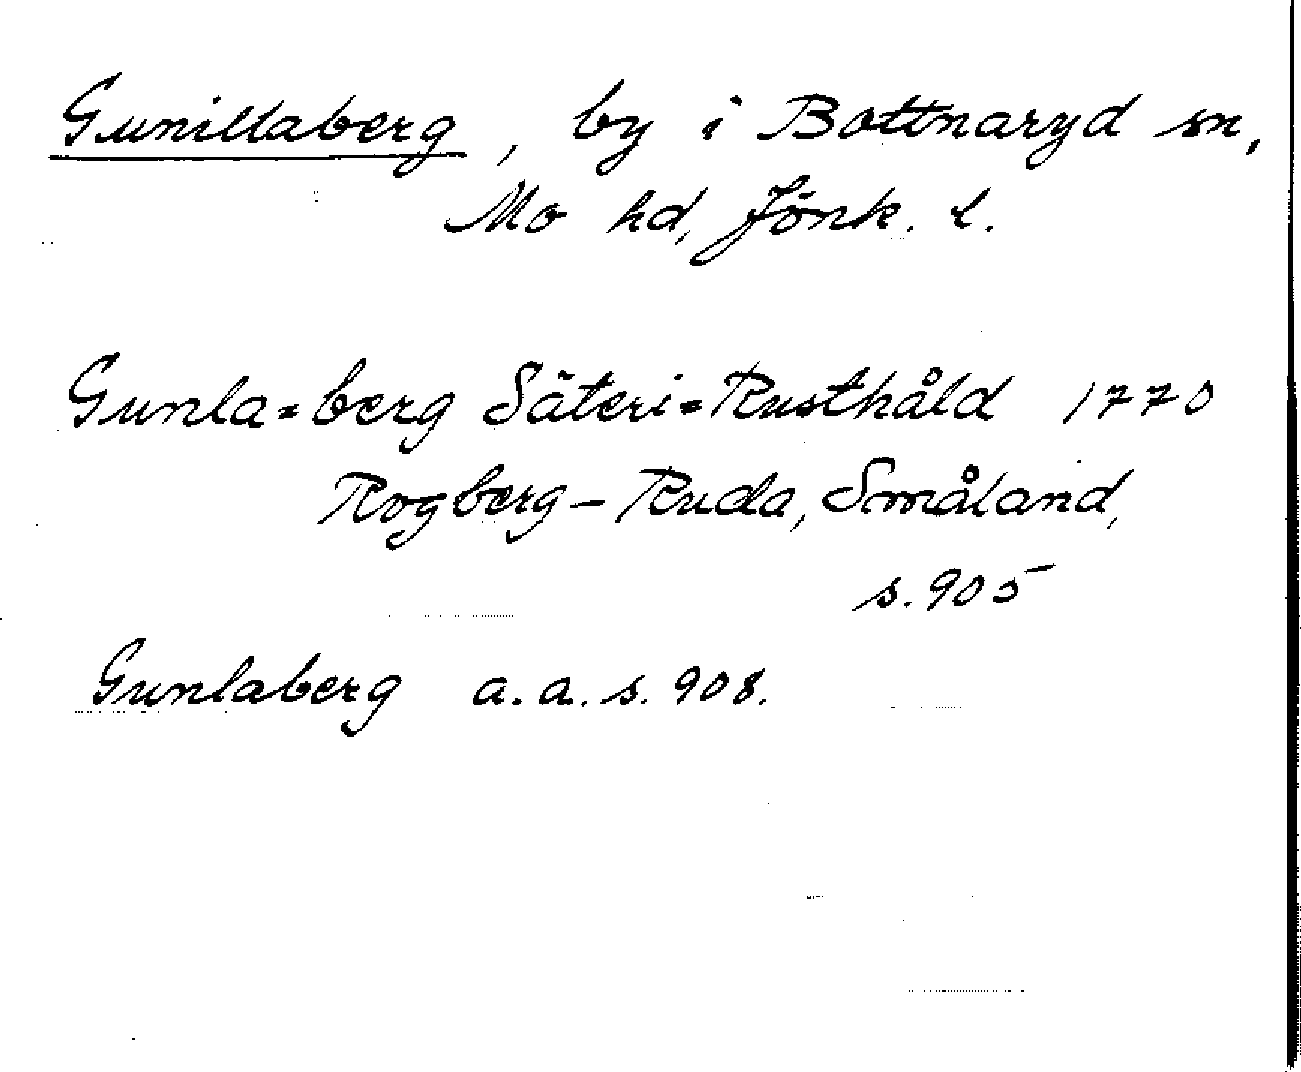 Gunillaberg, by i Bottnaryd sn,
Mo hd, Jönk. l.
Gunla=berg Säteri=Rusthåld 1770
Rogberg-Ruda, Småland,
s. 905
Gunlaberg a. a. s. 908.